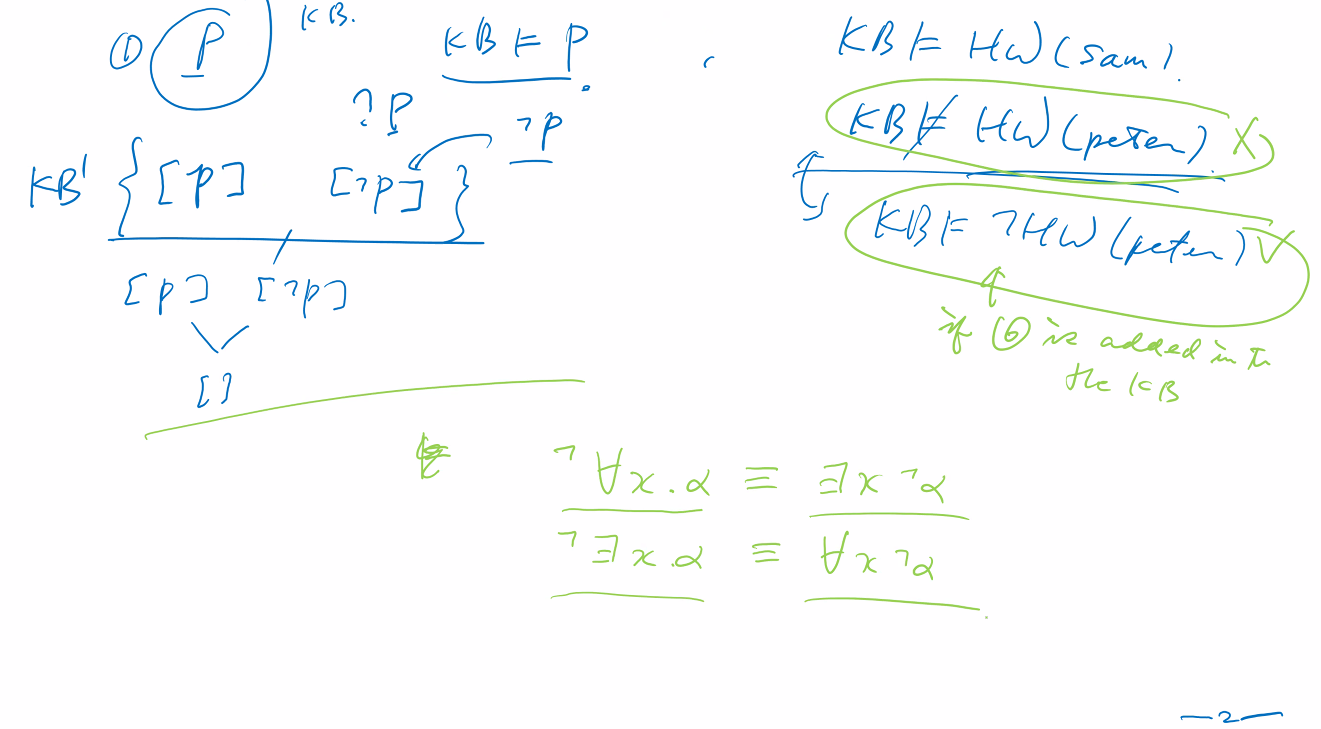 ① P KB.
KB ⊨ P.
? P
¬P
KB' { [P] [¬P] }
[P] [¬P]
[]
KB ⊨ HW(Sam).
KB ⊭ HW(peter) X
KB ⊨ ¬HW(peter) ✓
if ⑥ is added into
the KB
¬∀x.α ≡ ∃x¬α
¬∃x.α ≡ ∀x¬α
—2—